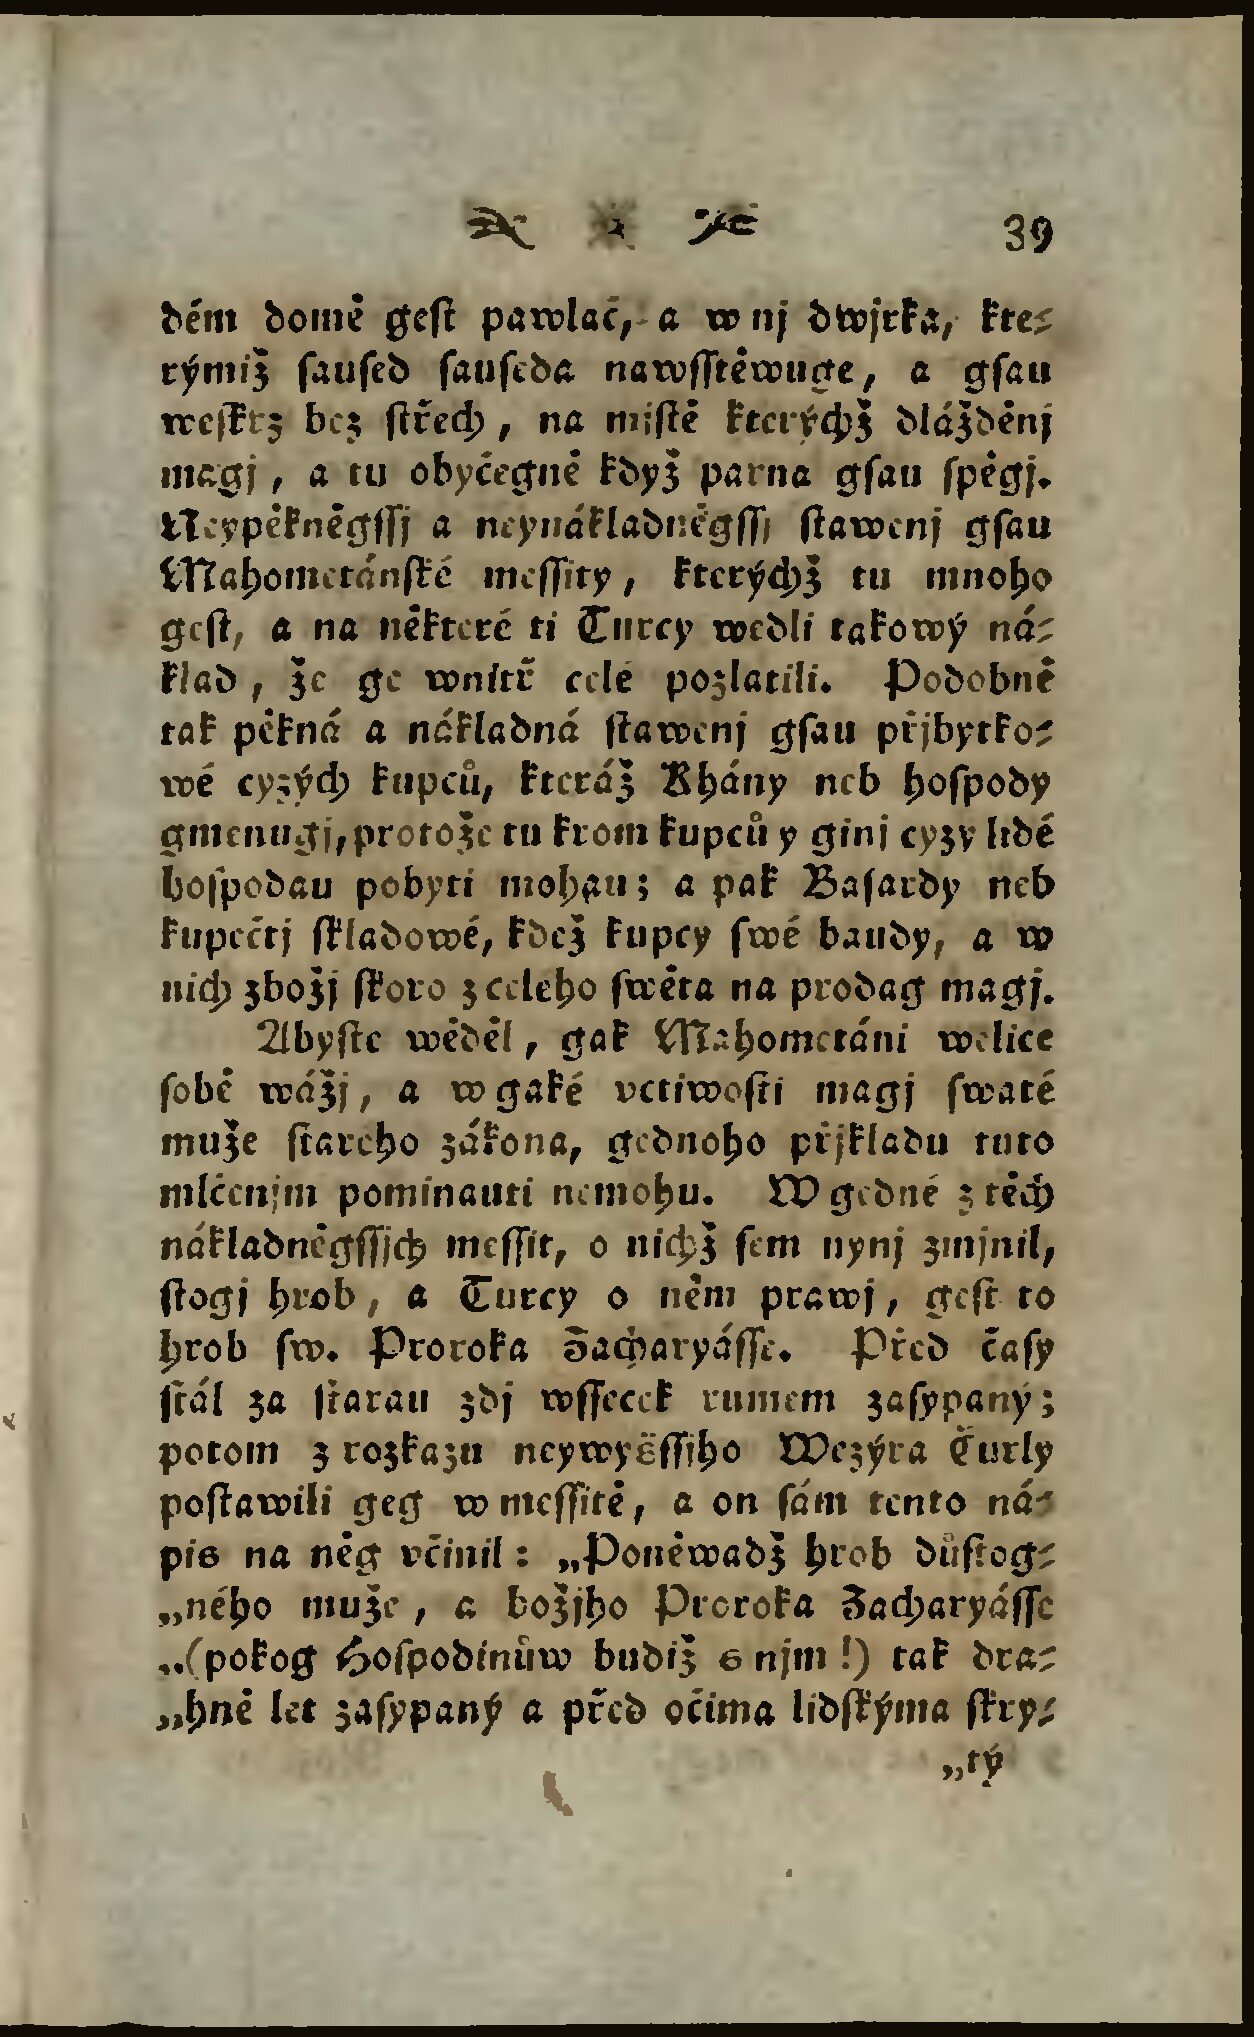 39
dém domě geſt pawlač, a w nj dwjrka, kte⸗
rýmiž ſauſed ſauſeda nawſſtěwuge, a gſau
weſkrz bez ſtřech, na miſtě kterýchž dlážděnj
magj, a tu obyčegně když parna gſau ſpěgj.
Neypěkněgſſj a neynákladněgſſj ſtawenj gſau
Mahometánſké meſſity, kterýchž tu mnoho
geſt, a na některé ti Turcy wedli takowý ná⸗
klad, že ge wnitř celé pozlatili. Podobně
tak pěkná a nákladná ſtawenj gſau přjbytko⸗
wé cyzých kupců, kteráž Khány neb hoſpody
gmenugj, protože tu krom kupců y ginj cyzy lidé
hoſpodau pobyti mohau; a pak Baſardy neb
kupečtj ſkladowé, kdež kupcy ſwé baudy, a w
nich zbožj ſkoro z celeho ſwěta na prodag magj.
Abyſte wěděl, gak Mahometáni welice
ſobě wážj, a w gaké vctiwoſti magj ſwaté
muže ſtareho zákona, gednoho přjkladu tuto
mlčenjm pominauti nemohu. W gedné z těch
nákladněgſſjch meſſit, o nichž ſem nynj zmjnil,
ſtogj hrob, a Turcy o něm prawj, geſt to
hrob ſw. Proroka Zacharyáſſe. Před čaſy
ſtál za ſtarau zdj wſſecek rumem zaſypaný;
potom z rozkazu neywyšſſiho Wezýra Čurly
poſtawili geg w meſſitě, a on ſám tento ná⸗
pis na něg včinil: „Poněwadž hrob důſtog⸗
„ného muže, a božjho Proroka Zacharyáſſe
„(pokog Hoſpodinůw budiž s njm!) tak dra⸗
„hně let zaſypaný a před očima lidſkýma ſkry⸗
„tý